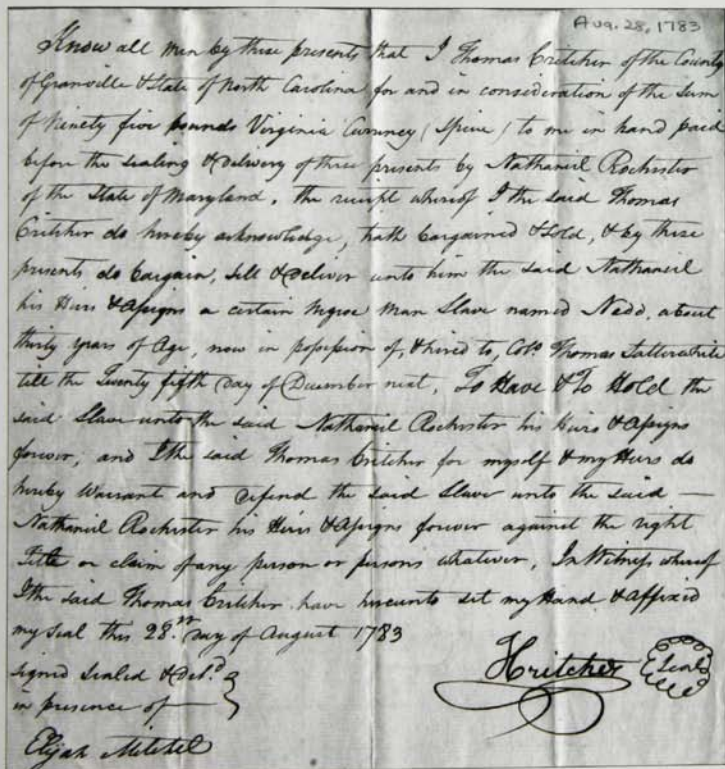 Aug. 28, 1783
Know all men by these presents that I Thomas Critcher of the County
of Granville & State of North Carolina for and in consideration of the Sum
of Ninety five pounds Virginia Currency (Specie) to me in hand paid
before the sealing & delivery of these presents by Nathaniel Rochester
of the State of Maryland, the receipt whereof I the said Thomas
Critcher do hereby acknowledge, hath bargained & Sold, & by these
presents do bargain, sell & deliver unto him the said Nathaniel
his Heirs & Assigns a certain Negroe Man Slave named Nedd, about
thirty years of Age, now in possession of, & hired to, Colo. Thomas Satterwhite
till the Twenty fifth day of December next, To Have & To Hold the
said Slave unto the said Nathaniel Rochester his Heirs & Assigns
forever, and I the said Thomas Critcher for myself & my Heirs do
hereby Warrant and defend the said Slave unto the said —
Nathaniel Rochester his Heirs & Assigns forever against the right
Title or claim of any person or persons whatever, In Witness whereof
I the said Thomas Critcher have hereunto set my Hand & affixed
my Seal this 28th. day of August 1783
signed Sealed & Deld.
in presence of
Elijah Mitchel
T Critcher
Seal